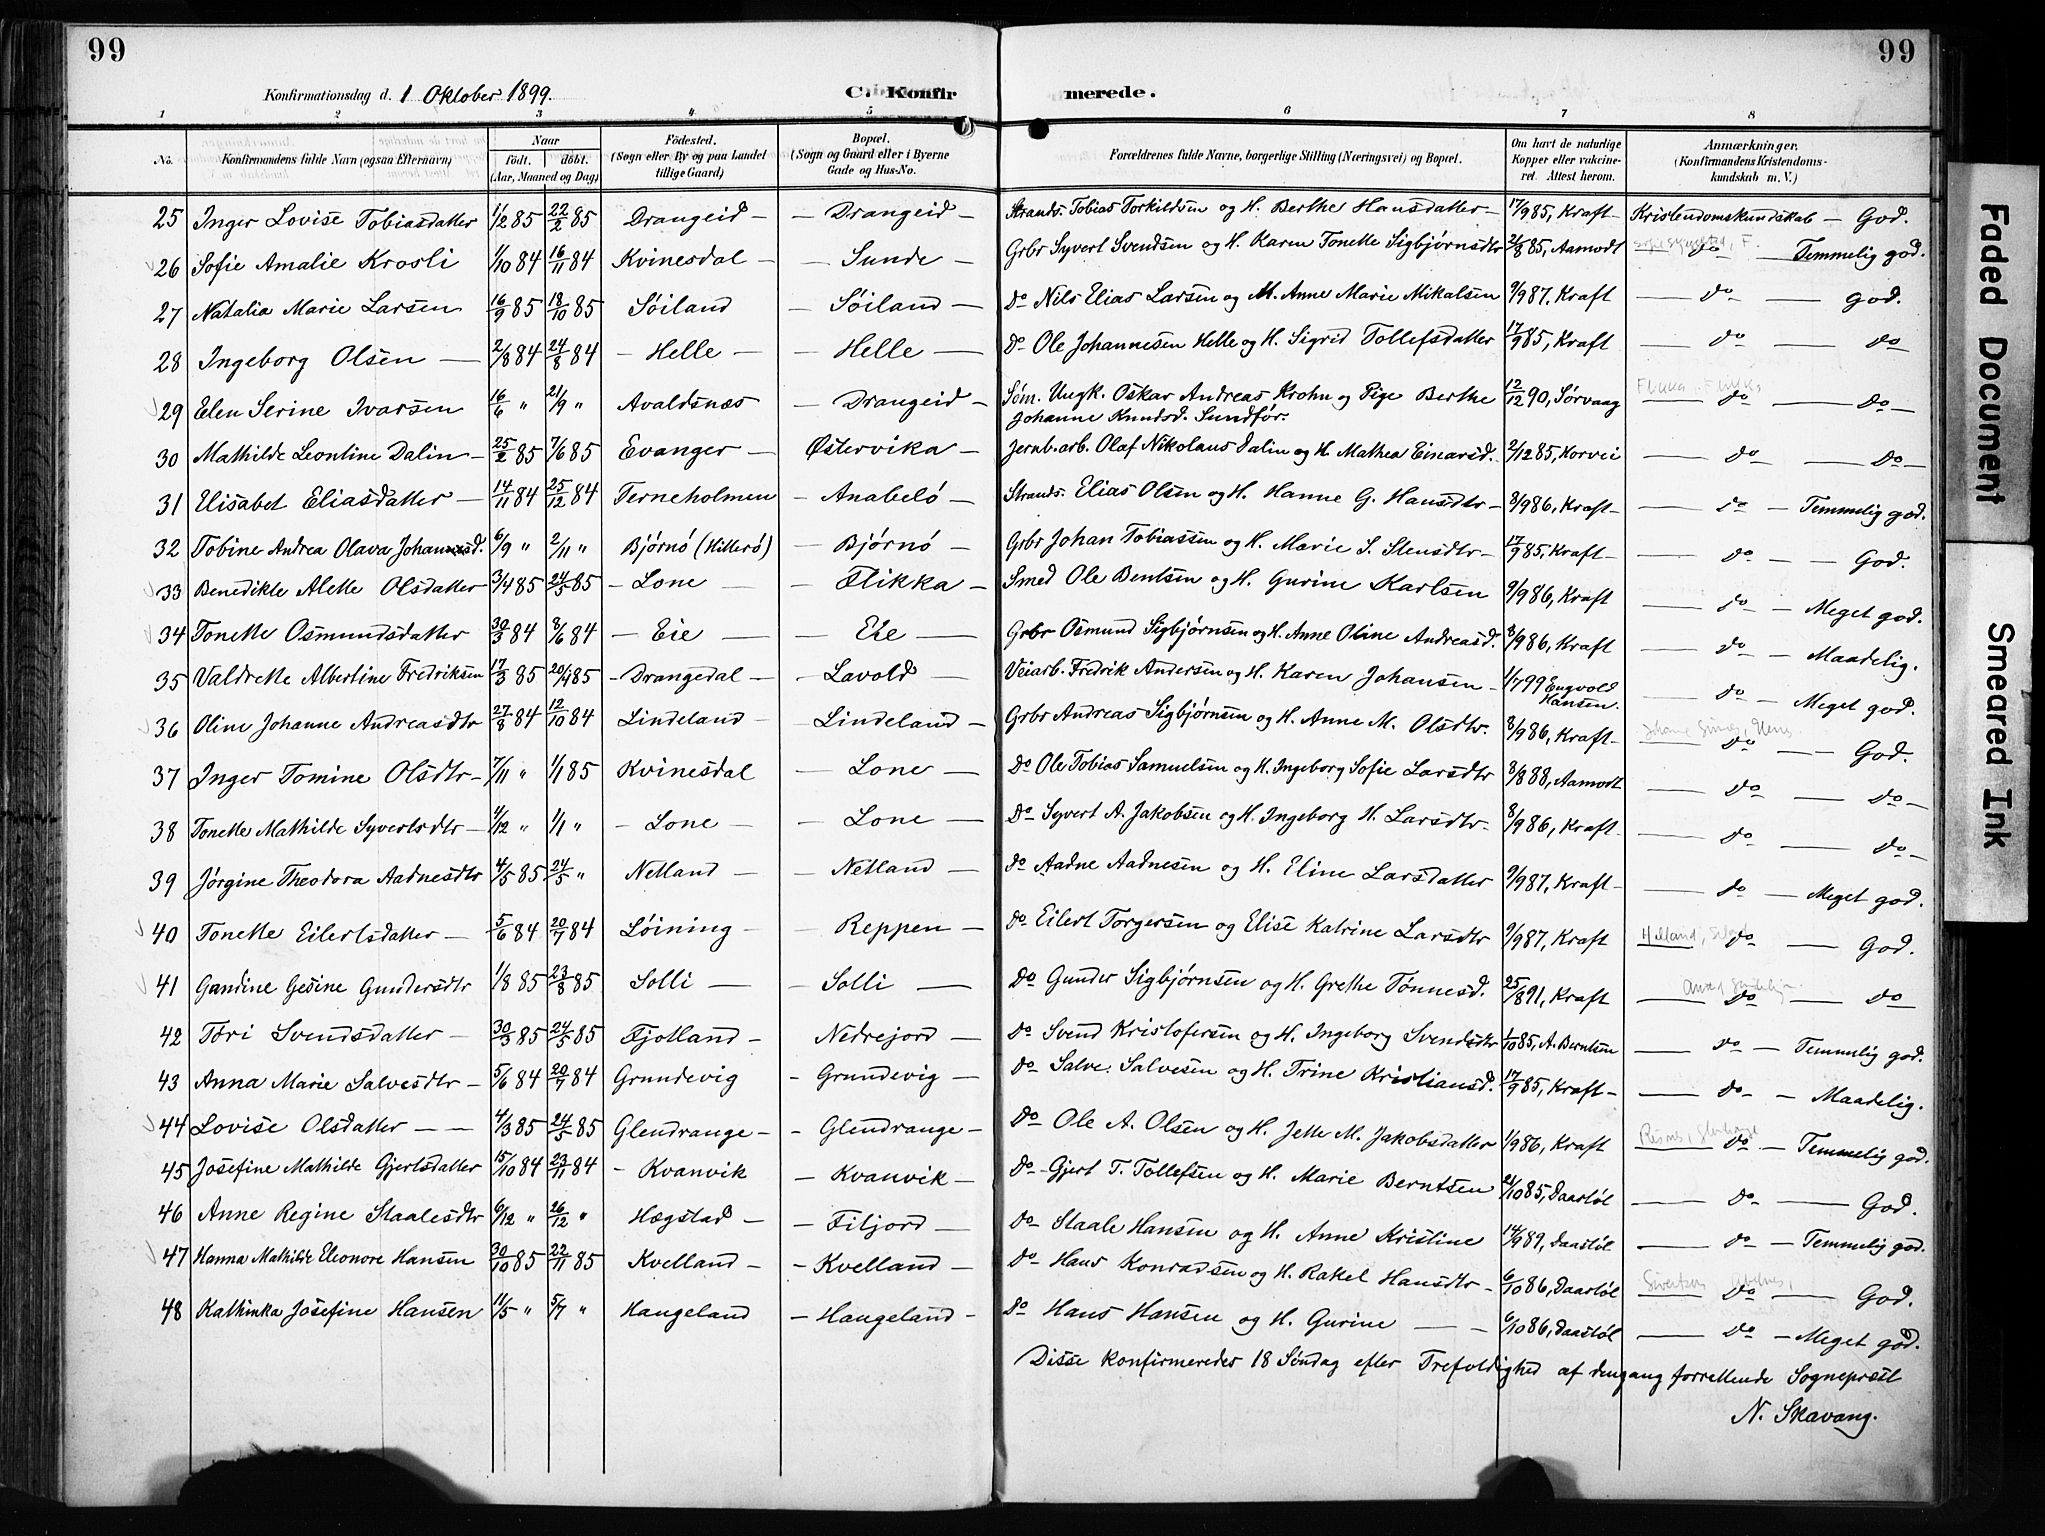 99
99
Konfirmationsdag d. 1 Oktober 1899.
C. Konfir
merede.
1 2 3 4 5 6 7 8
No. Konfirmandens fulde Navn (ogsaa Efternavn) Naar født. døbt. (Aar, Maaned og Dag) Fødested. (Sogn eller By og paa Landet tillige Gaard) Bopæl. (Sogn og Gaard eller i Byerne Gade og Hus-No. Forældrenes fulde Navne, borgerlige Stilling (Næringsvei) og Bopæl. Om havt de naturlige Kopper eller vakcineret. Attest herom. Anmærkninger. (Konfirmandens Kristendomskundskab m. V.)
25 Inger Lovise Tobiasdatter 11/2 85 22/2 85 Drangeid – – Drangeid – Strands. Tobias Torkildsen og H. Berthe Hansdatter – 17/9 85, Kraft – Kristendomskundskab – God.
26 Sofie Amalie Krosli 1/10 84 16/11 84 Kvinesdal – – Sunde – Grbr Syvert Svendsen og H. Karen Tonette Sigbjørnsdtr 2/8 85, Aamodt – do – Temmelig god.
27 Natalia Marie Larsen 16/9 85 18/10 85 Søiland – Søiland – do Nils Elias Larsen og H. Anne Marie Mikalsen 9/9 87, Kraft – do – god.
28 Ingeborg Olsen – 2/8 84 24/8 84 – Helle – – Helle – do Ole Johannesen Helle og H. Sigrid Tollefsdatter 17/9 85, Kraft – do – do
29 Elen Serine Ivarsen 16/6 " 21/9 " Avaldsnæs – Drangeid – Søm. Ungk. Oskar Andreas Krohn og Pige Berthe 12/12 90, Sørvaag – do – do –
Johanne Knudsd. Sundfør.
30 Mathilde Leontine Dalin – 25/2 85 7/6 85 Evanger – Østervika – Jernb.arb. Olaf Nikolaus Dalin og H. Mathea Einarsd. 2/12 85, Korvei – do – do –
31 Elisabet Eliasdatter – 14/11 84 25/12 84 Terneholmen – Anabelö – Strands. Elias Olsen og H. Hanne G. Hansdtr – 8/9 86, Kraft – do – Temmelig god.
32 Tobine Andrea Olava Johannesd. 6/9 " 2/11 " Bjørnö (Hitterö) – Bjørnö – Grbr Johan Tobiassen og H. Marie S. Stensdtr – 17/9 85, Kraft – – do – – God.
33 Benedikte Alette Olsdatter 3/4 85 24/5 85 – Lone – – Flikka – Smed Ole Bentsen og H. Gurine Karlsen 9/9 86, Kraft – do – Meget god.
34 Tonette Osmundsdatter 30/3 84 8/6 84 – Eie – – Eie – Grbr Osmund Sigbjørnsen og H. Anne Oline Andreasd. 8/9 86, Kraft – do – Maadelig.
35 Valdrette Albertine Fredriksen 17/3 85 20/4 85 – Drangedal – Lavold – Veiarb. Fredrik Andersen og H. Karen Johansen – 1/7 99 Engvold Hansen. – do – Meget god.
36 Oline Johanne Andreasdtr 27/8 84 12/10 84 Lindeland – – Lindeland – Grbr Andreas Sigbjørnsen og H. Anne M. Olsdtr. 8/9 86, Kraft – – do – – God.
37 Inger Tomine Olsdtr – 7/11 " 1/1 85 Kvinesdal – Lone – do Ole Tobias Samuelsen og H. Ingeborg Sofie Larsdtr 8/8 88, Aamodt – do – do –
38 Tonette Mathilde Syvertsdtr – 4/12 " 1/1 " – Lone – – Lone – do Syvert A. Jakobsen og H. Ingeborg H. Larsdtr. 8/9 86, Kraft – – do – do –
39 Jørgine Theodora Aadnesdtr 4/5 85 24/5 " Netland – – Netland – do Aadne Aadnesen og H. Eline Larsdatter 9/9 87, Kraft – – do – Meget god.
40 Tonette Eilertsdatter – 5/6 84 20/7 84 Løining – – Reppen – do Eilert Torgersen og Elise Katrine Larsdtr 9/9 87, Kraft – do – God.
41 Gandine Gesine Gundersdtr 1/8 85 23/8 85 Solli – – Solli – do Gunder Sigbjørnsen og H. Grethe Tønnesd. 25/8 91, Kraft – do – do
42 Tori Svendsdatter – 30/3 85 24/5 85 Fjotland – – Nedrejord – do Svend Kristofersen og H. Ingeborg Svendsdtr 1/10 85, A. Berntsen – do – Temmelig god.
43 Anna Marie Salvesdtr – 5/6 84 20/7 84 Grundevig – Grundevig – do Salve Salvesen og H. Trine Kristiansd. 17/9 85, Kraft – – do – Maadelig.
44 Lovise Olsdatter – – 4/3 85 24/5 85 Glendrange – – Glendrange – do Ole A. Olsen og H. Jette M. Jakobsdatter 1/9 86, Kraft – do – Temmelig god.
45 Josefine Mathilde Gjertsdatter 15/10 84 23/11 84 – Kvanvik – Kvanvik – do – Gjert T. Tollefsen og H. Marie Berntsen 21/10 85, Daastøl – do – God.
46 Anne Regine Staalesdtr 6/12 " 26/12 " Hægstad – – Filjord – do Staale Hansen og H. Anne Kristine 14/9 89, Daastøl – do – Temmelig god.
47 Hanna Mathilde Eleonore Hansen 30/10 85 22/11 85 Kvelland – – Kvelland – do Hans Konradsen og H. Rakel Hansdtr – 6/10 86, Daastøl – do – God.
48 Kathinka Josefine Hansen 11/5 " 5/7 " Haugeland – Haugeland – do Hans Hansen og H. Gurine – – 6/10 86, Daastøl – do – Meget god.
Disse konfirmeredes 18 Søndag efter Trefoldighed af dengang forrettende Sogneprest
N. Skavang.
Faded Document
Smeared Ink